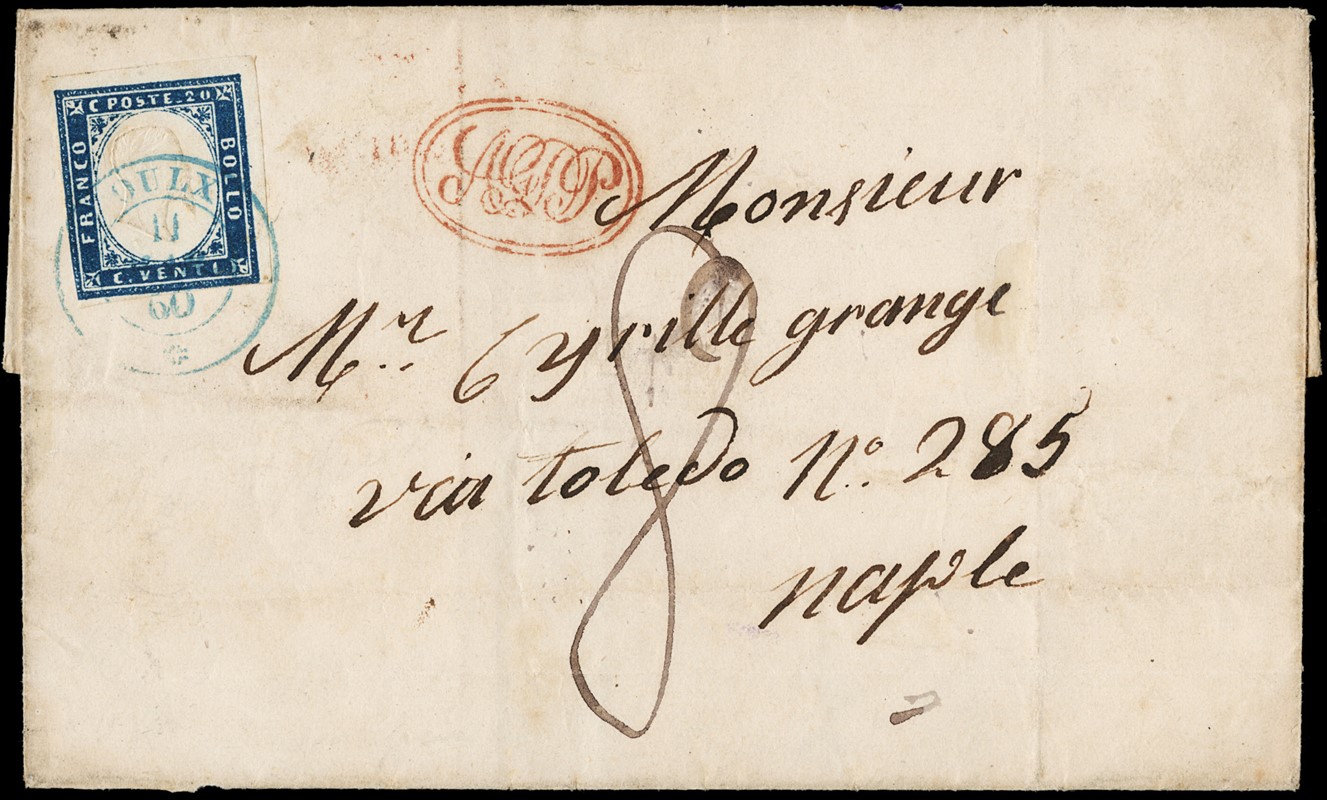 C POSTE 20
FRANCO
BOLLO
C. VENTI
OULX
11
60
AGDP
Monsieur
Mr. Cyrille grange
via toledo No. 285
naple
8